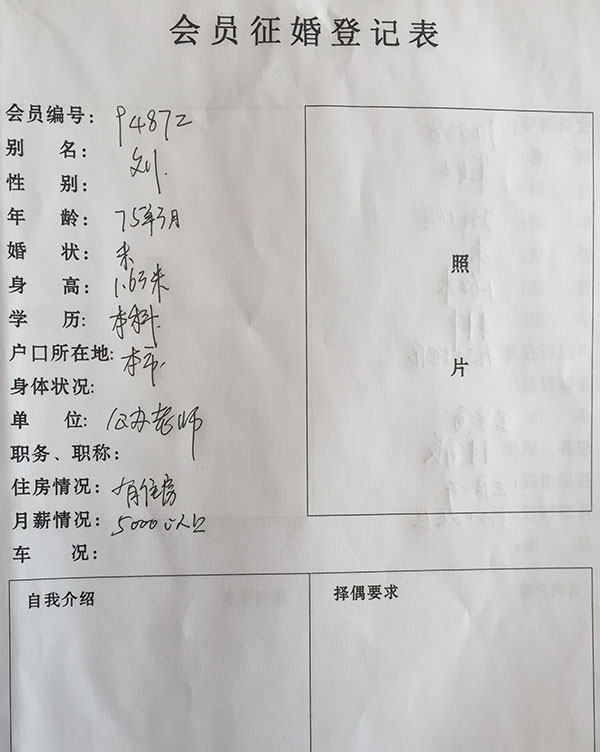 会员征婚登记表
会员编号: 94872
别 名: 刘.
性 别:
年 龄: 75年3月
婚 状: 未
身 高: 1.63米
学 历: 本科.
户口所在地: 本市.
身体状况:
单 位: 公办老师
职务、职称:
住房情况: 有住房
月薪情况: 5000以上
车 况:
照
片
自我介绍
择偶要求